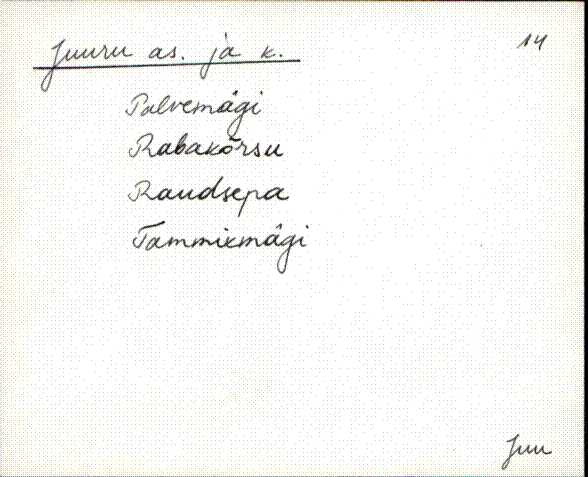 Juuru as. ja k.
14
Palvemägi
Rabakõrsu
Raudsepa
Tammikmägi
Juu